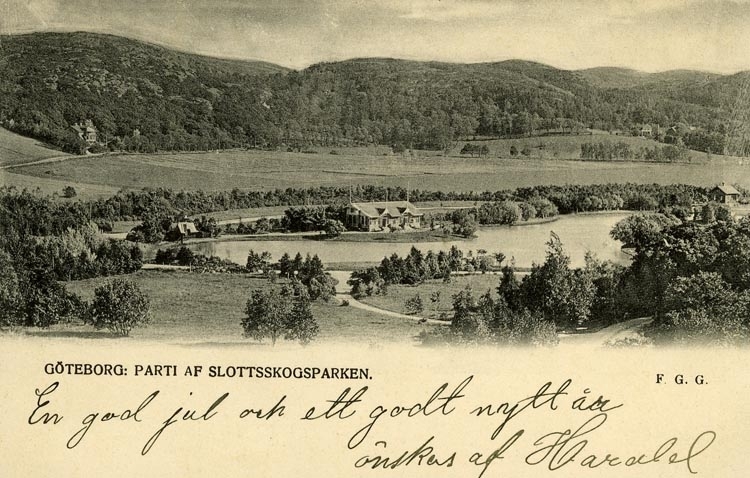 GÖTEBORG: PARTI AF SLOTTSSKOGSPARKEN.
F. G. G.
En god jul och ett godt nytt år
önskas af Harald